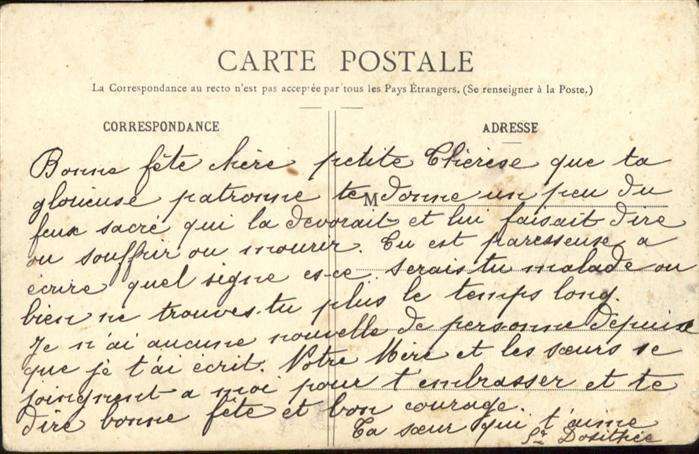 CARTE POSTALE
La Correspondance au recto n'est pas acceptée par tous les Pays Étrangers. (Se renseigner à la Poste.)
CORRESPONDANCE
ADRESSE
M
Bonne fête chère petite Thérèse que ta
glorieuse patronne te donne un peu du
feux sacré qui la dévorait et lui faisait dire
ou souffrir ou mourir. Tu est paresseuse a
ecrire quel signe es-ce serais tu malade ou
bien ne trouves-tu plus le temps long.
Je n'ai aucune nouvelle de personne depuis
que je t'ai écrit. Notre Mère et les sœurs se
joignent a moi pour t'embrasser et te
dire bonne fête et bon courage.
Ta sœur qui t'aime
Sr Dosithée